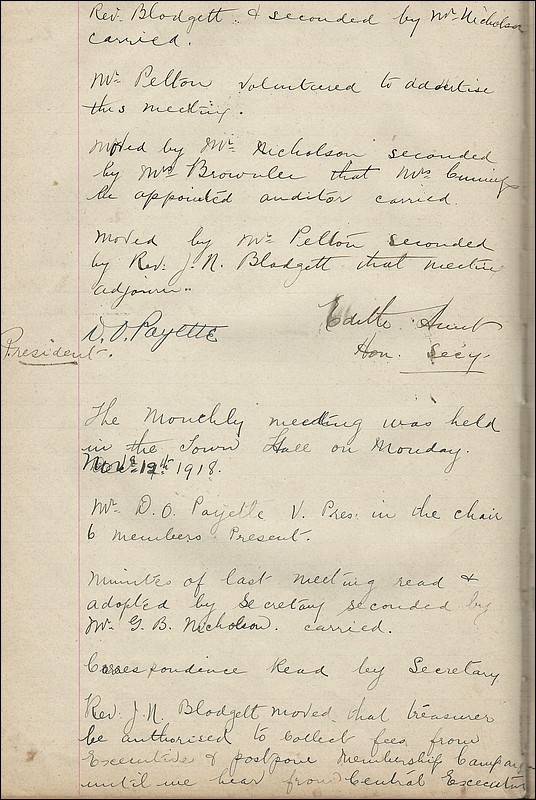 Rev. Blodgett & seconded by Mr. Nicholson
carried.
Mr. Pelton volunteered to advertise
this meeting.
Moved by Mr. Nicholson seconded
by Mrs Brownlee that Mrs
be appointed auditor carried.
Moved by Mr. Pelton seconded
by Rev. J. N. Blodgett that meeting
adjourn.
D. O. Payette
President.
Edith Hunt
Hon. Secy.
The Monthly meeting was held
in the Town Hall on Monday.
1918.
Mr. D. O. Payette V. Pres. in the chair
6 members Present.
Minutes of last meeting read &
adopted by Secretary seconded by
Mr. G. B. Nicholson. carried.
Correspondence Read by Secretary
Rev. J. N. Blodgett moved that treasurer
be authorised to collect fees from
Executive & postpone Membership Campaign
until we hear from Central Executive